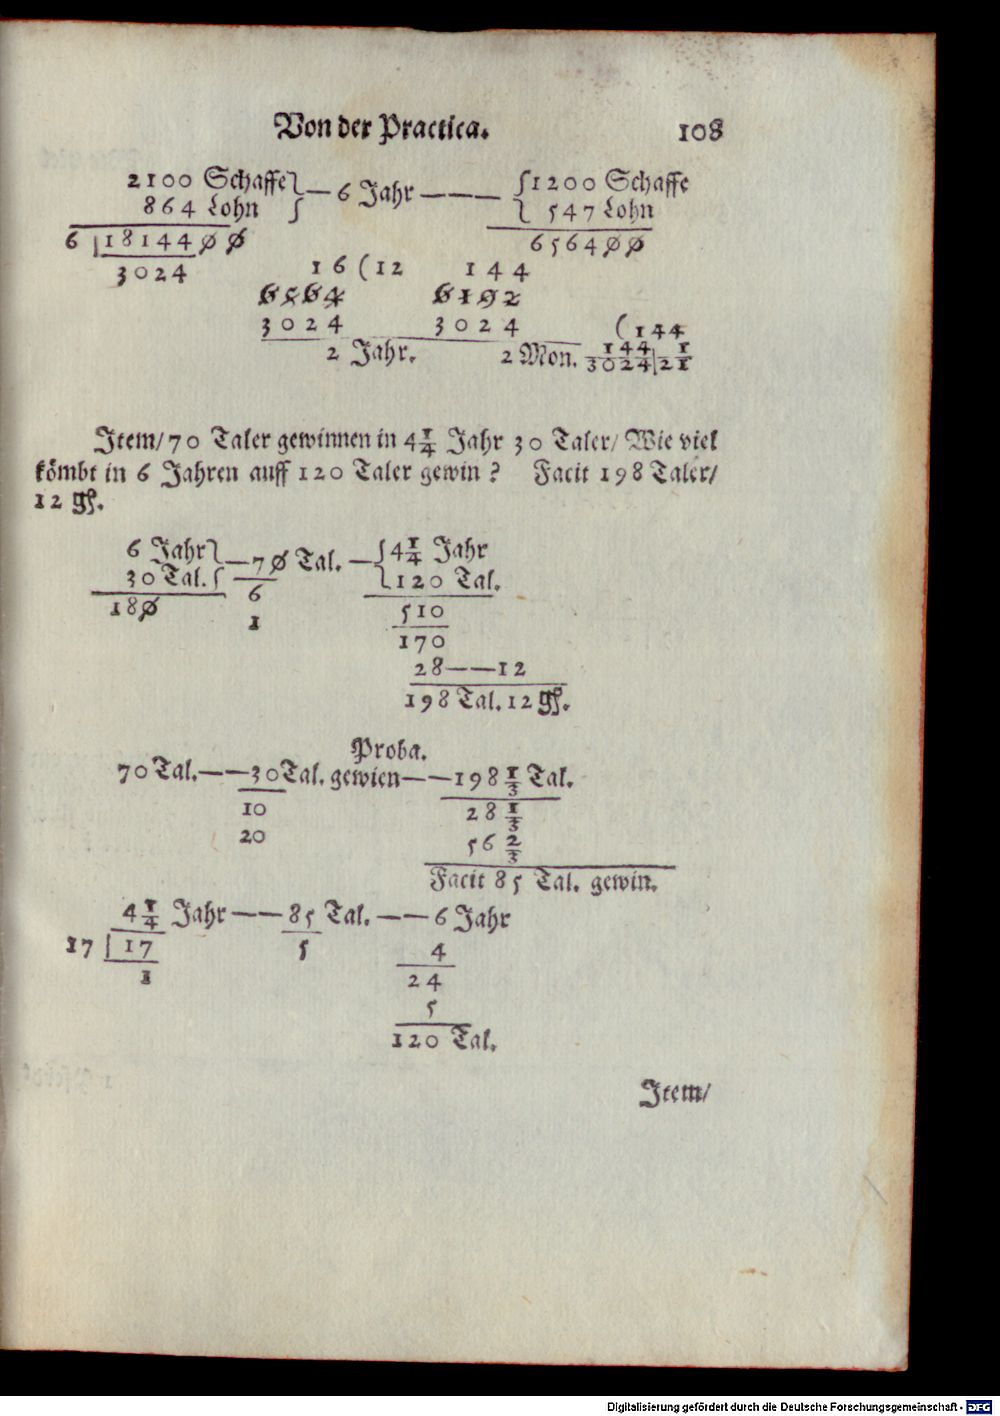 Von der Practica. 108
2100 Schaffe } — 6 Jahr — — — { 1200 Schaffe
864 Lohn } { 547 Lohn
6 | 1814400 656400
3024 16 (12 144
6564 6192
3024 3024 (144
2 Jahr. 2 Mon. 144/3024 | 1/21
Item/ 70 Taler gewinnen in 4 1/4 Jahr 30 Taler/ Wie viel
kömbt in 6 Jahren auff 120 Taler gewin ? Facit 198 Taler/
12 gß.
6 Jahr } — 70 Tal. — { 4 1/4 Jahr
30 Tal. } 6 { 120 Tal.
180 1 510
170
28 — — 12
198 Tal. 12 gß.
Proba.
70 Tal. — — 30 Tal. gewien — — 198 1/3 Tal.
10 28 1/3
20 56 2/3
Facit 85 Tal. gewin.
4 1/4 Jahr — — 85 Tal. — — 6 Jahr
17 | 17 5 4
1 24
5
120 Tal.
Item/
Digitalisierung gefördert durch die Deutsche Forschungsgemeinschaft - DFG